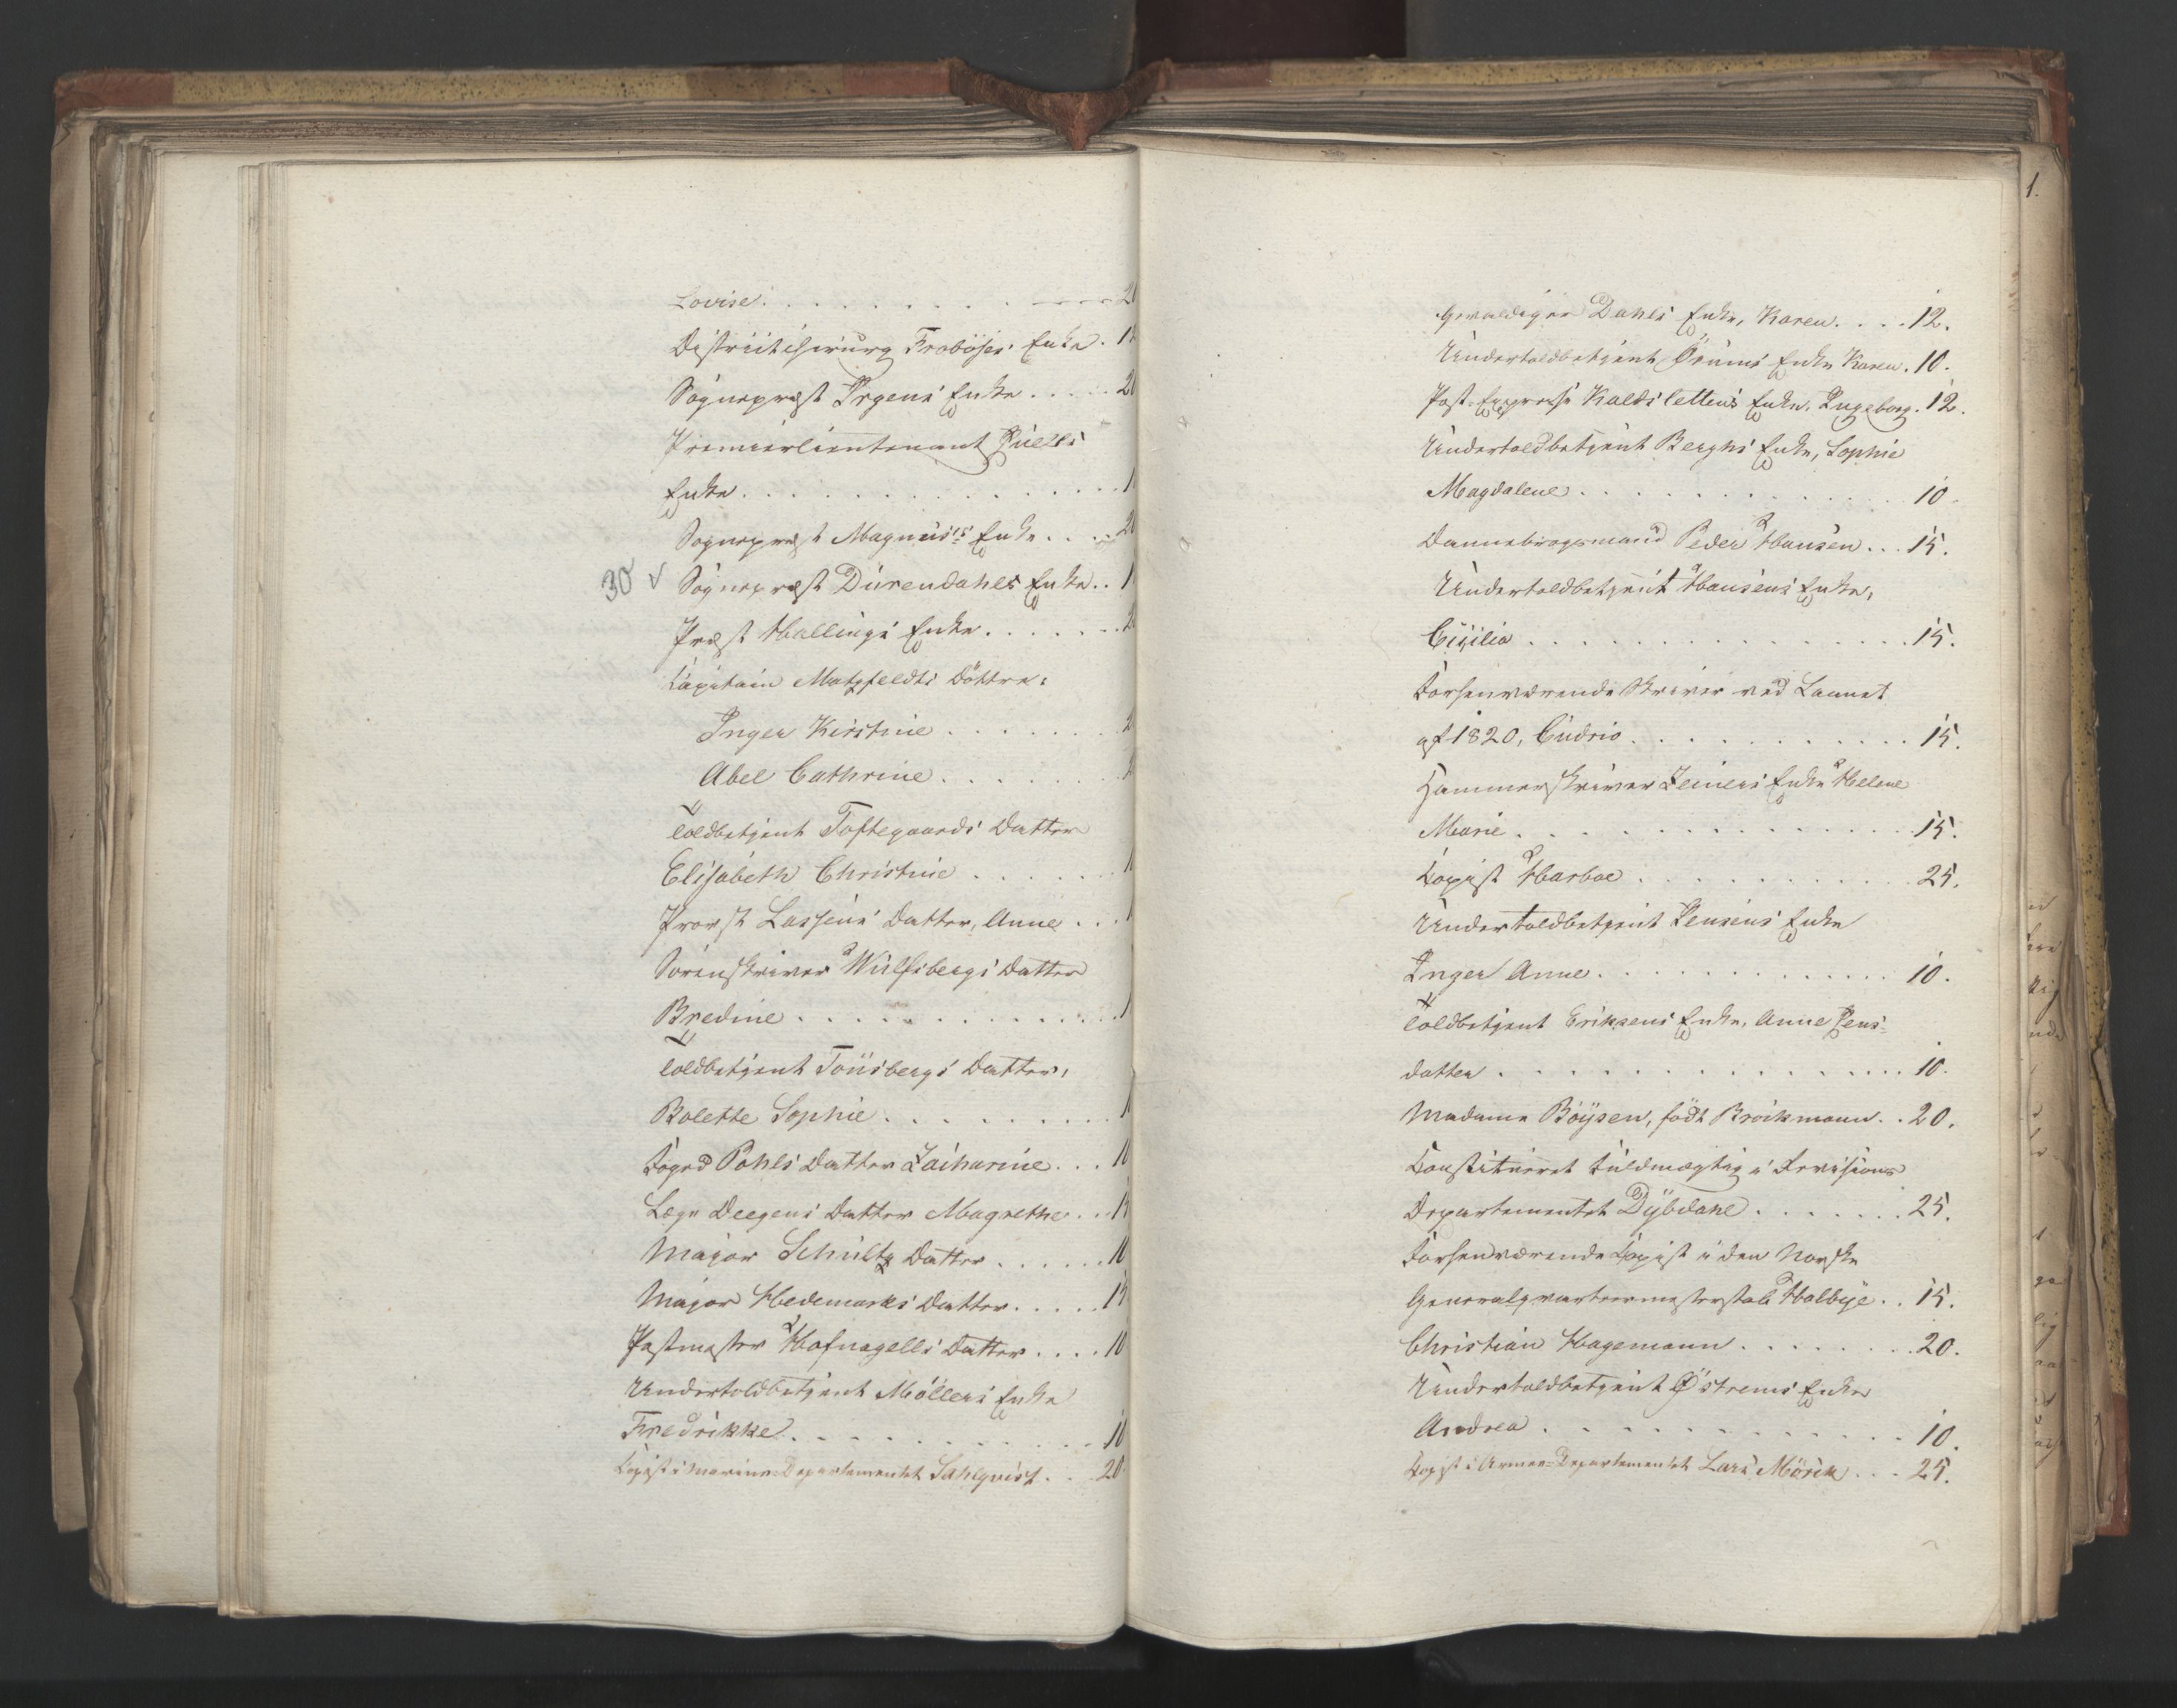 Lovise . . . . . . . . . 2
Districtschirurg Frobøses Enke . 1
Sognepræst Irgens Enke . . . . . 20
Premierlieutenant Juells
Enke . . . . . . . . . . . . . 1
Sognepræst Magnus's Enke . . . . 20
30 ✓ Sognepræst Dürendahls Enke . . 1
Præst Hallings Enke . . . . . . . 2
Capitain Matzfeldts Døttre:
Inger Kirstine . . . . . . . 2
Abel Cathrine . . . . . . . 2
Toldbetjent Toftegaards Datter
Elisabeth Christine . . . . . . 1
Provst Lassens Datter, Anne . . . 1
Sorenskriver Wulfsbergs Datter
Bredine . . . . . . . . . . . . . 1
Toldbetjent Tønsbergs Datter,
Bolette Sophie . . . . . . . . . 1
Foged Pohls Datter Zacharine . . . 10
Læge Deegens Datter Magrethe . . 15
Major Schultz Datter . . . . . . 10
Major Hedemarks Datter . . . . . 15
Postmester Hofnagells Datter . . . . 10
Undertoldbetjent Møllers Enke
Fredrikke . . . . . . . . . . . 10
Copist i Marine-Departementet Sahlqvist . . . 20
1.
Gevaldiger Dahls Enke, Karen . . . . 12.
Undertoldbetjent Ørums Enke Karen . 10.
Post-Expressе Kaldslettens Enke, Ingeborg . 12.
Undertoldbetjent Berghs Enke, Sophie
Magdalene . . . . . . . . . . . 10.
Dannebrogsmand Peder Hansen . . . 15.
Undertoldbetjent Hansens Enke,
Cicilia . . . . . . . . . . . . . 15.
Forhenværende Skriver ved Laanet
af 1820, Cudrio . . . . . . . . . . 15.
Hammerskriver Zeiners Enke Helene
Marie . . . . . . . . . . . . . 15.
Copist Harboe . . . . . . . . . . 25.
Undertoldbetjent Jensens Enke
Inger Anne . . . . . . . . . . . 10.
Toldbetjent Eriksens Enke, Anne Jens-
datter . . . . . . . . . . . . . 10.
Madame Böysen, født Bröckmann . . 20.
Constitueret Fuldmægtig i Revisions
Departementet Dybdahl . . . . . . . 25.
Forhenværende Copist i den Norske
Generalqvarteermesterstab Holbye . . 15.
Christian Hagemann . . . . . . . . 20.
Undertoldbetjent Østrems Enke
Andrea . . . . . . . . . . . . 10.
Copist i Armee-Departementet Lars Mörch . . . 25.